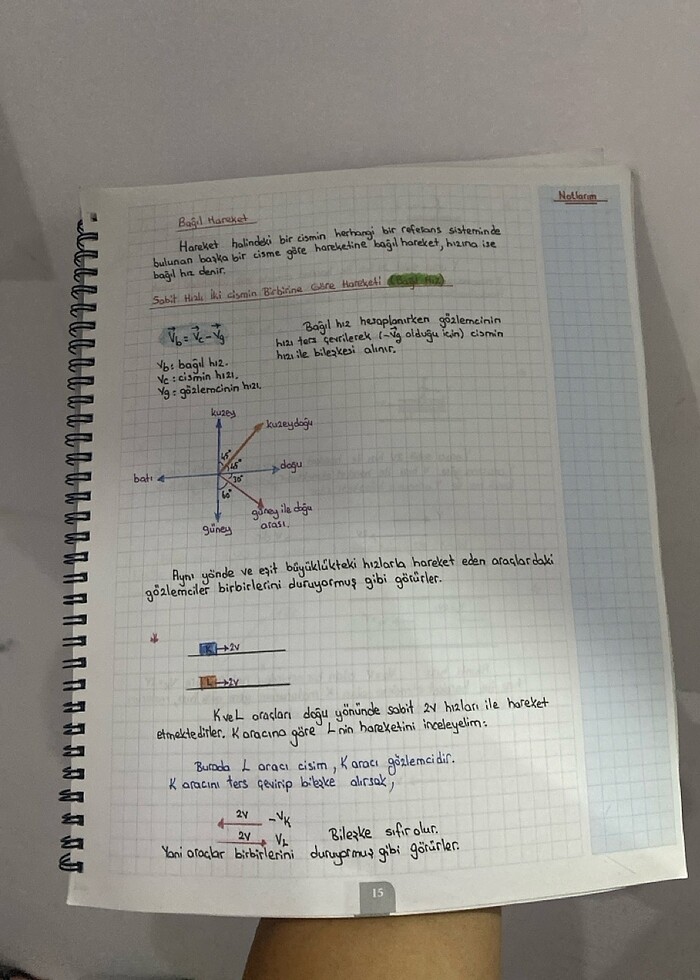 Notlarım
Bağıl Hareket
Hareket halindeki bir cismin herhangi bir referans sisteminde
bulunan başka bir cisme göre hareketine bağıl hareket, hızına ise
bağıl hız denir.
Sabit Hızlı İki Cismin Birbirine Göre Hareketi (Bağıl Hız)
V⃗b = V⃗c - V⃗g
Vb: bağıl hız.
Vc: cismin hızı.
Vg = gözlemcinin hızı.
Bağıl hız hesaplanırken gözlemcinin
hızı ters çevrilerek (-V⃗g olduğu için) cismin
hızı ile bileşkesi alınır.
kuzey
kuzeydoğu
45°
45°
batı
doğu
30°
60°
güney ile doğu
arası.
güney
Aynı yönde ve eşit büyüklükteki hızlarla hareket eden araçlardaki
gözlemciler birbirlerini duruyormuş gibi görürler.
*
K →2V
L →2V
K ve L araçları doğu yönünde sabit 2V hızları ile hareket
etmektedirler. K aracına göre L nin hareketini inceleyelim:
Burada L aracı cisim, K aracı gözlemcidir.
K aracını ters çevirip bileşke alırsak,
2V -VK
2V VL
Bileşke sıfır olur.
Yani araçlar birbirlerini duruyormuş gibi görürler.
15